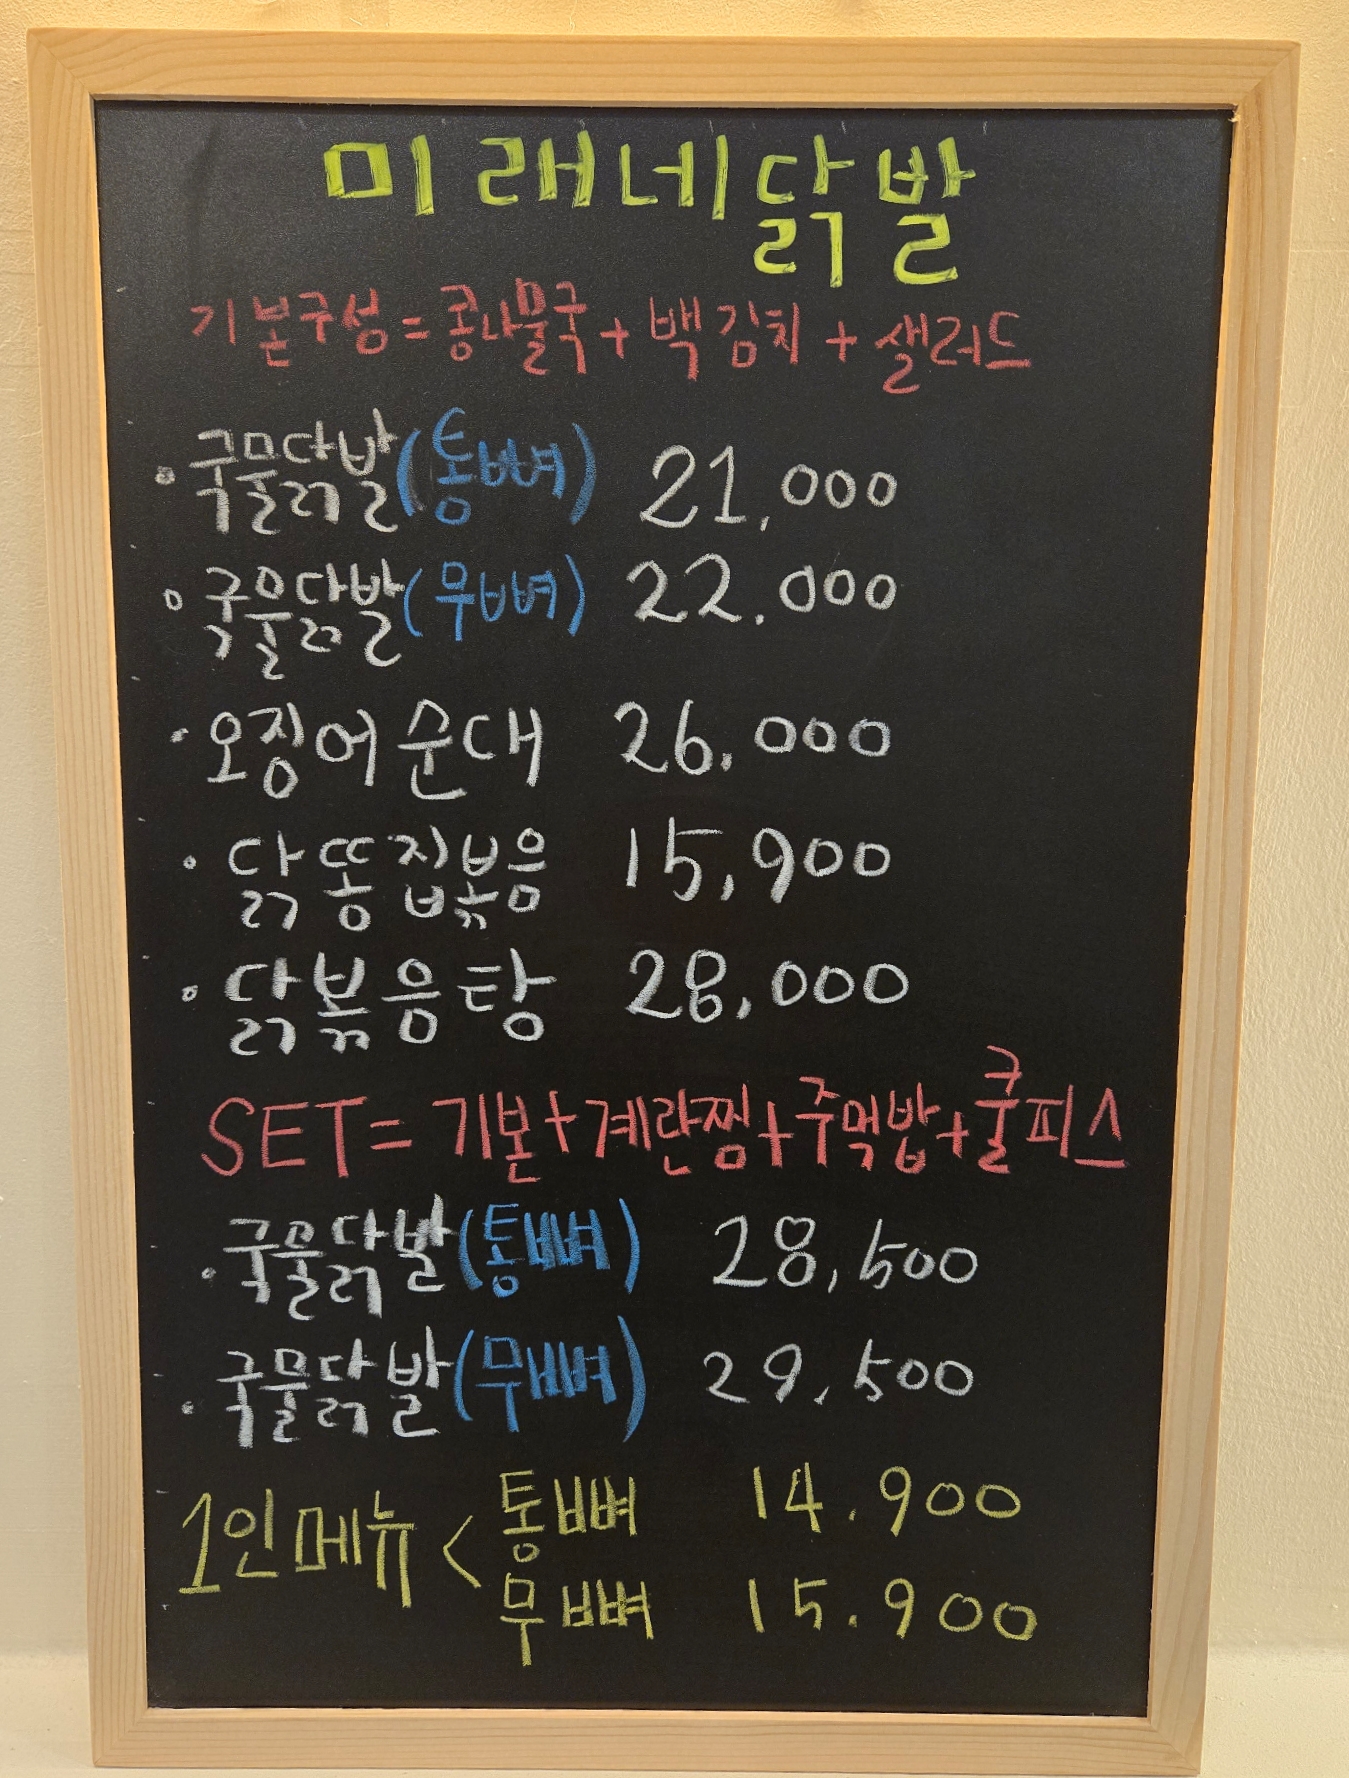 미래네닭발
기본구성=콩나물국+백김치+샐러드
국물닭발(통뼈) 21,000
국물닭발(무뼈) 22.000
오징어순대 26.000
닭똥집볶음 15,900
닭볶음탕 28,000
SET=기본+계란찜+주먹밥+쿨피스
국물닭발(통뼈) 28,500
국물닭발(무뼈) 29,500
1인메뉴 < 통뼈 14.900
무뼈 15.900